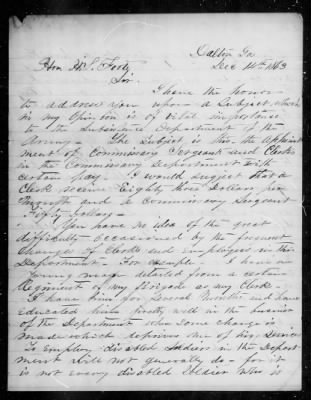 Dalton Ga
Dec 14th 1863
Hon H. S. Foote
Sir
I have the honor
to address you upon a subject, which
in my opinion is of vital importance
to the Subsistence Department of the
Army. The Subject is this the appoint
ment of Commissary Sergeants and Clerks
in the Commissary Department with
certain pay. I would suggest that a
Clerk receive Eighty three Dollars per
Month and a Commissary Sergeant
Fifty Dollars.
You have no idea of the great
difficulty occasioned by the frequent
changes of Clerks and Employees in this
Department. For example I have a
young man detailed from a certain
Regiment of my Brigade as my Clerk.
I have him for several months and have
educated him pretty well in the business
of the Department when some change is
made which deprives me of his services
To Employ disabled soldiers in the Depart
ment will not generally do - for it
is not every disabled soldier who is